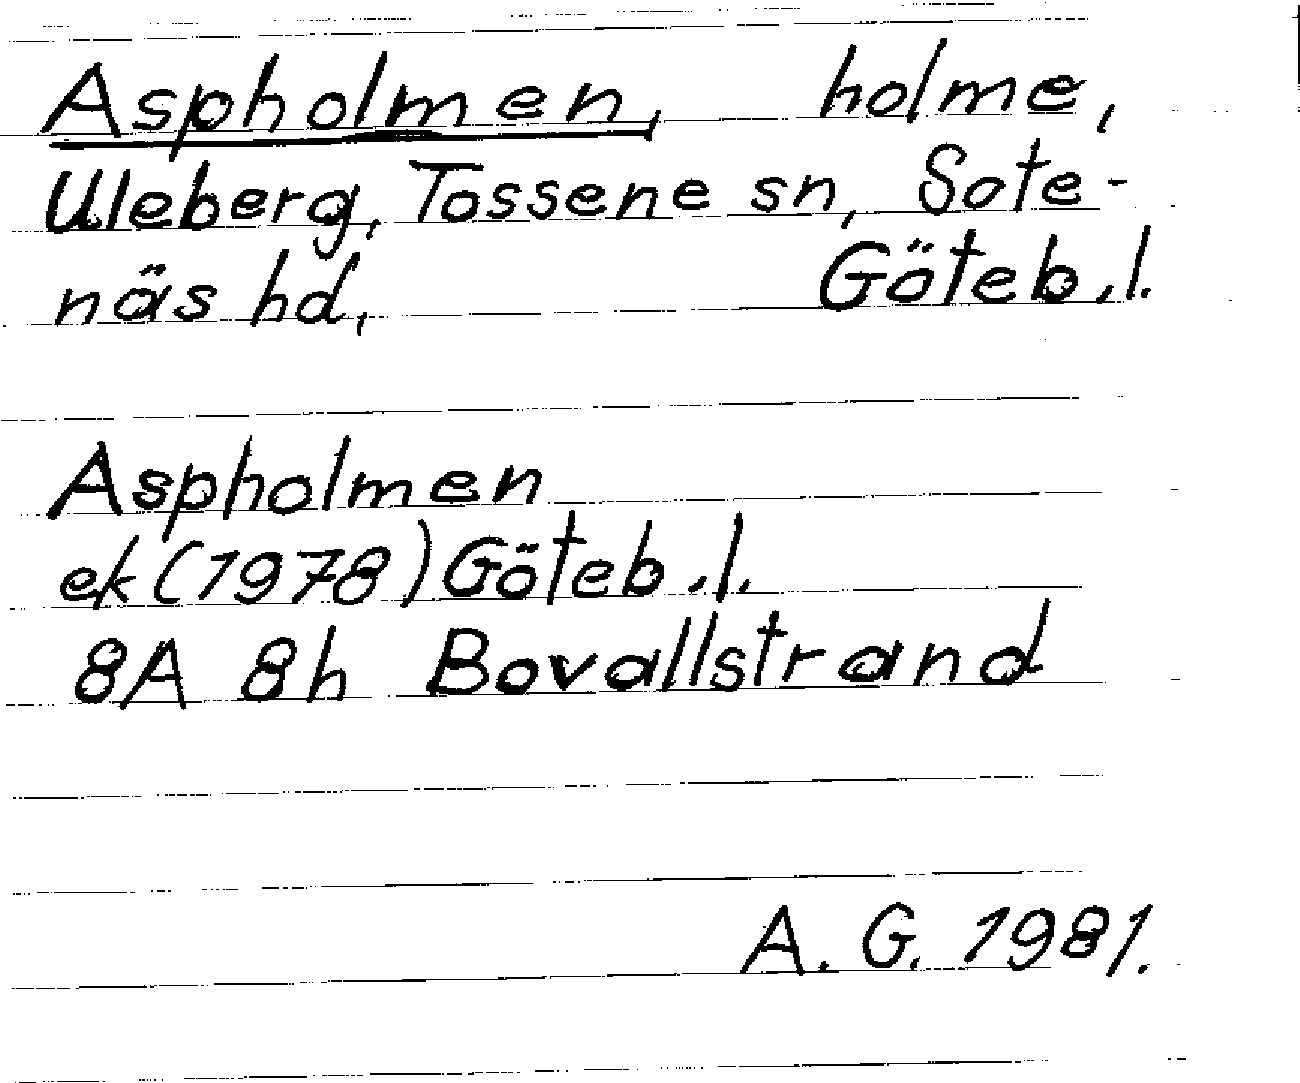 Aspholmen, holme,
Uleberg, Tossene sn, Sote-
näs hd, Göteb.l.
Aspholmen
ek (1978) Göteb.l.
8A 8h Bovallstrand
A. G. 1981.